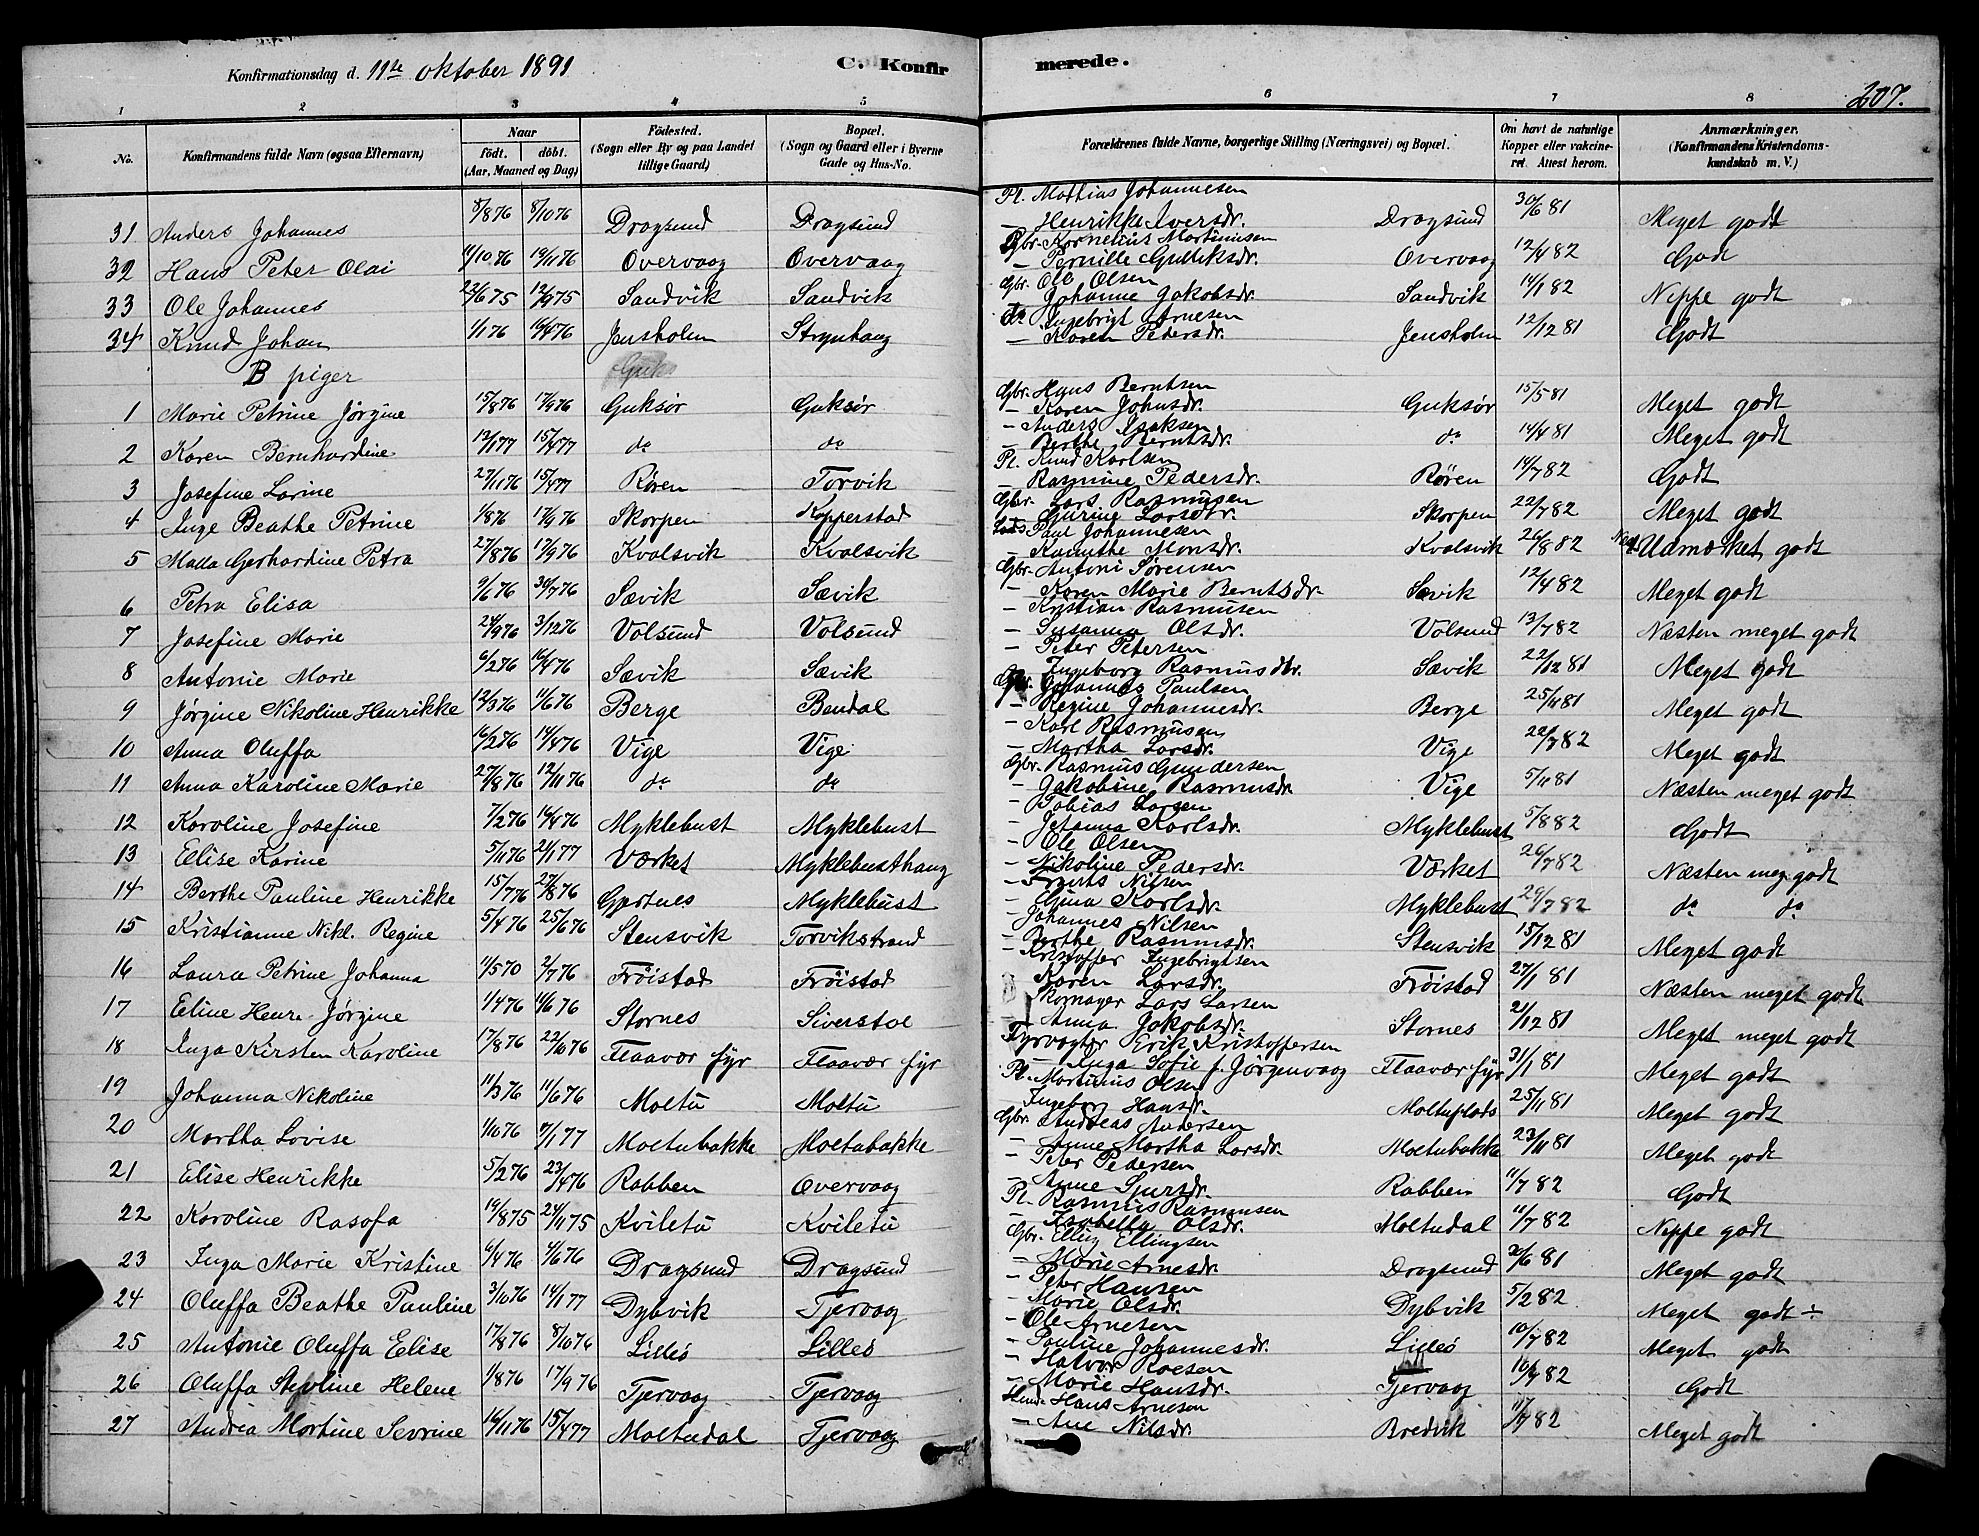 Konfirmationsdag d. 11te oktober 1891 C. Konfirmerede. 207.
1 2 3 4 5 6 7 8
No. Konfirmandens fulde Navn (ogsaa Efternavn) Naar født. døbt. (Aar, Maaned og Dag) Födested. (Sogn eller By og paa Landet tillige Gaard) Bopæl. (Sogn og Gaard eller i Byerne Gade og Hus-No.) Forældrenes fulde Navne, borgerlige Stilling (Næringsvei) og Bopæl. Om havt de naturlige Kopper eller vaccineret. Attest herom. Anmærkninger. (Konfirmandens Kristendomskundskab m. V.)
31 Anders Johannes 5/876 8/1076 Dragsund Dragsund Pl. Mathias Johannesen
— Henrikke Iversdr. Dragsund 30/6 81 Meget godt
32 Hans Peter Olai 11/1076 19/1176 Overvaag Overvaag Gbr. Kornelius Martinusen
— Pernille Gulliksdr. Overvaag 12/482 Godt
33 Ole Johannes 22/675 12/975 Sandvik Sandvik Gbr. Ole Olsen
— Johanne Jakobsdr. Sandvik 14/182 Neppe godt
34 Knud Johan 1/176 16/476 Jensholm Strynhaug do Ingebrigt Arnesen
— Karen Pedersdr. Jensholm 12/1281 Godt
B piger
1 Marie Petrine Jørgine 15/876 17/976 Guksør Guksør Gbr. Hans Berntsen
— Karen Johnsdr. Guksør 15/581 Meget godt
2 Karen Bernhardine 12/177 15/477 do do — Anders Isaksen
— Berthe Berntsdr. do 14/481 Meget godt
3 Josefine Larine 27/1176 15/477 Røren Torvik Pl. Knud Karlsen
— Rasmine Pedersdr. Røren 14/782 Godt
4 Inge Beathe Petrine 1/876 17/976 Skorpen Kopperstad Gbr. Lars Rasmusen
— Gurine Larsdtr. Skorpen 22/782 Meget godt
5 Malla Gerhardine Petra 27/876 17/976 Kvalsvik Kvalsvik Paul Johannesen
— Kanuthe Monsdr. Kvalsvik 26/882 Udmærket godt
6 Petra Elisa 9/676 30/776 Sævik Sævik Gbr. Antoni Sørensen
— Karen Marie Berntsdr. Sævik 12/482 Meget godt
7 Josefine Marie 24/976 3/1276 Volsund Volsund — Kristian Rasmusen
— Susanna Olsdr. Volsund 13/782 Næsten meget godt
8 Antonie Marie 6/276 16/476 Sævik Sævik — Peter Petersen
— Ingeborg Rasmusdtr. Sævik 22/1281 Meget godt
9 Jørgine Nikoline Henrikke 12/376 11/676 Berge Bendal Gbr. Johannes Paulsen
— Regine Johannesdr. Berge 25/1181 Meget godt
10 Anna Oluffa 16/276 14/476 Vige Vige — Karl Rasmusen
— Martha Larsdr. Vige 22/782 Meget godt
11 Anna Karoline Marie 27/876 12/1176 do do Gbr. Rasmus Gundersen
— Jakobine Rasmusdr. Vige 5/1181 Næsten meget godt
12 Karoline Josefine 7/276 16/476 Myklebust Myklebust — Tobias Larsen
— Johanna Karlsdr. Myklebust 5/882 Godt
13 Elise Karine 5/1176 21/177 Værket Myklebusthaug — Ole Olsen
— Nikoline Pedersdr. Værket 26/782 Næsten meg. godt
14 Berthe Pauline Henrikke 15/776 27/876 Gjertnes Myklebust — Nilsen
— Elina Karlsdr. Myklebust 29/782 do do
15 Kristianne Nikl. Regine 5/476 25/676 Stensvik Torvikstrand Johannes Nilsen
— Berthe Rasmusdr. Stensvik 15/1281 Meget godt
16 Laura Petrine Johanna 11/570 2/776 Frøistad Frøistad Kristoffer Ingebrigtsen
Karen Larsdr. Frøistad 27/181 Næsten meget godt
17 Eline Henr. Jørgine 1/476 11/676 Stornes Siverstøl Lars Larsen
Anna Jakobsdr. Stornes 21/1281 Meget meget godt
18 Inga Kirsten Karoline 17/876 22/1076 Flaavær fyr Flaavær fyr Fyrvogter Erik Kristoffersen
— Inga Sofie f. Jörgenvaag Flaavær fyr 31/181 Meget godt
19 Johanna Nikoline 11/376 11/676 Moltu Moltu Pl. Martinus Olsen
Ingeborg Hansdr. Moltuplads 25/1181 Meget godt
20 Martha Lovise 1/1076 7/177 Moltubakke Moltubakke Gbr. Andreas Andersen
— Anne Martha Larsdr. Moltubakke 23/1181 Meget godt
21 Elise Henrikke 5/276 23/476 Rabben Overvaag — Peter Pedersen
— Anne Sjursdr. Rabben 11/782 Godt
22 Karoline Rasofa 19/875 24/1175 Kviletu Kviletu Pl. Rasmus Rasmusen
— Isabella Olsdr. Moltudal 11/782 Neppe godt
23 Inga Marie Kristine 6/476 4/676 Dragsund Dragsund Gbr. Elling Ellingsen
— Marie Arnesdr. Dragsund 30/681 Meget godt
24 Oluffa Beathe Pauline 3/1076 14/177 Dybvik Tjervaag — Peter Hansen
— Marie Olsdr. Dybvik 5/282 Meget godt ÷
25 Antonie Oluffa Elise 17/876 8/1076 Lilleö Lilleö — Ole Arnesen
— Pauline Johannesdr. Lilleö 10/782 Meget godt
26 Oluffa Stevline Helene 1/876 17/976 Tjervaag Tjervaag — Halvor Roesen
— Marie Hansdr. Tjervaag 10/782 Godt
27 Andrea Martine Sevrine 14/1176 15/477 Moltudal Tjervaag Hans Arnesen
— Ane Nilsdr. Bredvik 11/782 Meget godt